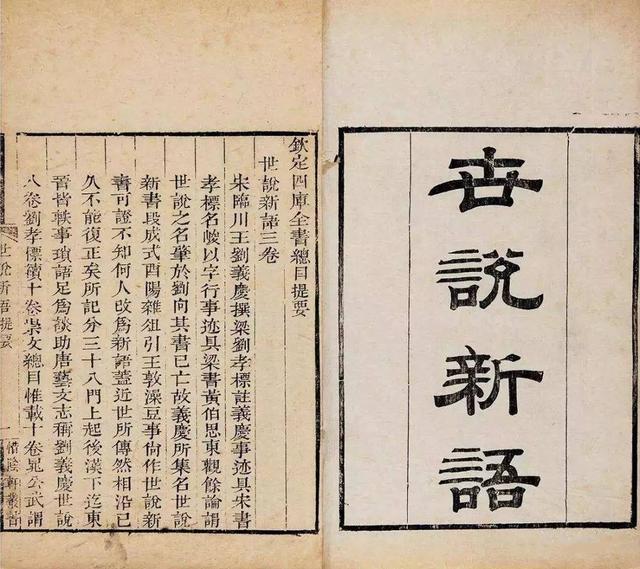 世說新語
欽定四庫全書總目提要
世說新語三卷
宋臨川王劉義慶撰梁劉孝標註義慶事迹具宋書
孝標名峻以字行事迹具梁書黃伯思東觀餘論謂
世說之名肇於劉向其書已亡故義慶所集名世說
新書段成式酉陽雜俎引王敦澡豆事尚作世說新
書可證不知何人改爲新語蓋近世所傳然相沿已
久不能復正矣所記分三十八門上起後漢下迄東
晉皆軼事瑣語足爲談助唐藝文志稱劉義慶世說
八卷劉孝標續十卷崇文總目惟載十卷晁公武謂
世說新語提要
一
惜陰軒叢書